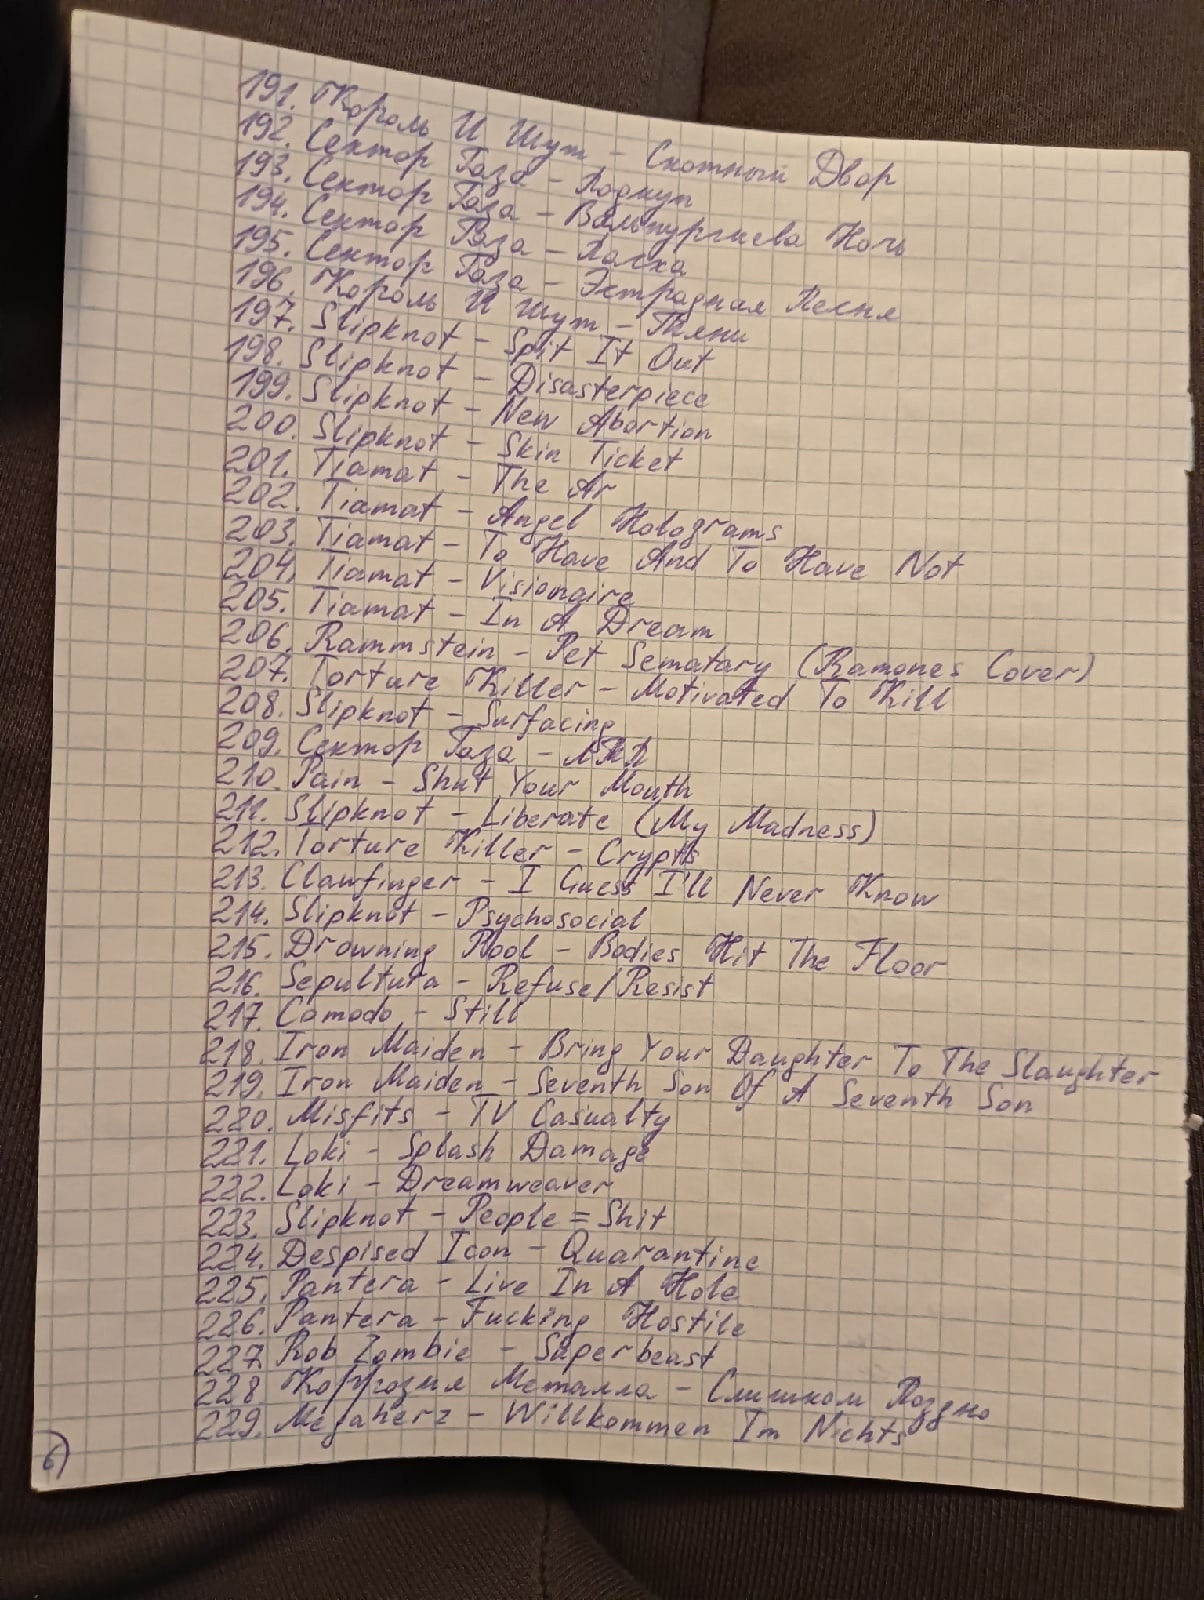 191. Король И Шут - Скотный Двор
192. Сектор Газа - Подкуп
193. Сектор Газа - Вальпургиева Ночь
194. Сектор Газа - Пасха
195. Сектор Газа - Эстрадная Песня
196. Король И Шут - Тяни
197. Slipknot - Spit It Out
198. Slipknot - Disasterpiece
199. Slipknot - New Abortion
200. Slipknot - Skin Ticket
201. Tiamat - The Ar
202. Tiamat - Angel Holograms
203. Tiamat - To Have And To Have Not
204. Tiamat - Visionaire
205. Tiamat - In A Dream
206. Rammstein - Pet Sematary (Ramones Cover)
207. Torture Killer - Motivated To Kill
208. Slipknot - Surfacing
209. Сектор Газа - ЛТП
210. Pain - Shut Your Mouth
211. Slipknot - Liberate (My Madness)
212. Torture Killer - Crypts
213. Clawfinger - I Guess I'll Never Know
214. Slipknot - Psychosocial
215. Drowning Pool - Bodies Hit The Floor
216. Sepultura - Refuse/Resist
217. Comodo - Still
218. Iron Maiden - Bring Your Daughter To The Slaughter
219. Iron Maiden - Seventh Son Of A Seventh Son
220. Misfits - TV Casualty
221. Loki - Splash Damage
222. Loki - Dreamweaver
223. Slipknot - People = Shit
224. Despised Icon - Quarantine
225. Pantera - Live In A Hole
226. Pantera - Fucking Hostile
227 Rob Zombie - Superbeast
228 Коррозия Металла - Слишком Поздно
229. Megaherz - Willkommen Im Nichts
6